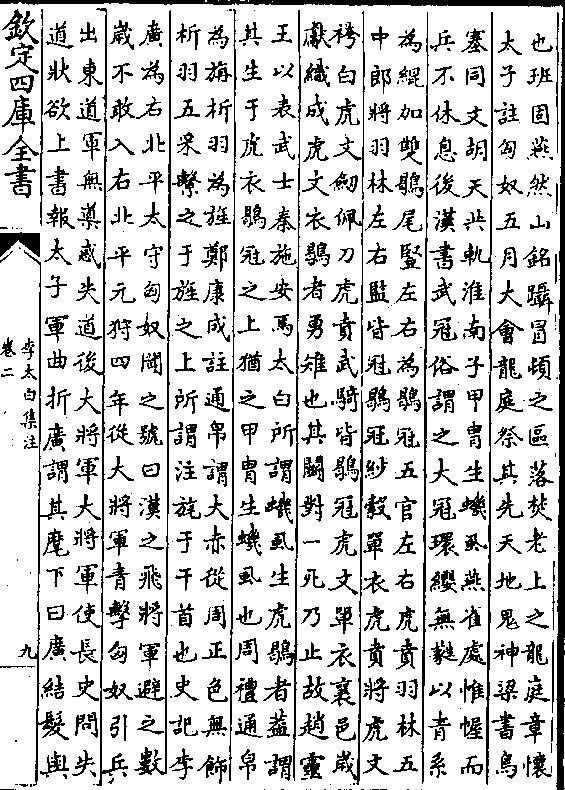 也班固燕然山銘躡冒頓之區落焚老上之龍庭章懷
太子註匈奴五月大會龍庭祭其先天地鬼神梁書烏
塞同文胡天共軌淮南子甲胄生蟣虱燕雀處惟幄而
兵不休息後漢書武冠俗謂之大冠環纓無蕤以青系
為緄加雙鶡尾豎左右為鶡冠五官左右虎賁羽林五
中郎將羽林左右監皆冠鶡冠紗縠單衣虎賁將虎文
袴白虎文劒佩刀虎賁武騎皆鶡冠虎文單衣襄邑歲
獻織成虎文衣鶡者勇雉也其鬭對一死乃止故趙靈
王以表武士秦施安焉太白所謂蟣虱生虎鶡者葢謂
其生于虎衣鶡冠之上猶之甲胄生蟣虱也周禮通帛
為旃析羽為旌鄭康成註通帛謂大赤從周正色無飾
析羽五采繫之于旌之上所謂注旄于干首也史記李
廣為右北平太守匈奴聞之號曰漢之飛將軍避之數
歲不敢入右北平元狩四年從大將軍青擊匈奴引兵
出東道軍無導惑失道後大將軍大將軍使長史問失
道狀欲上書報太子軍曲折廣謂其麾下曰廣結髮與
欽定四庫全書
李太白集注
卷二
九